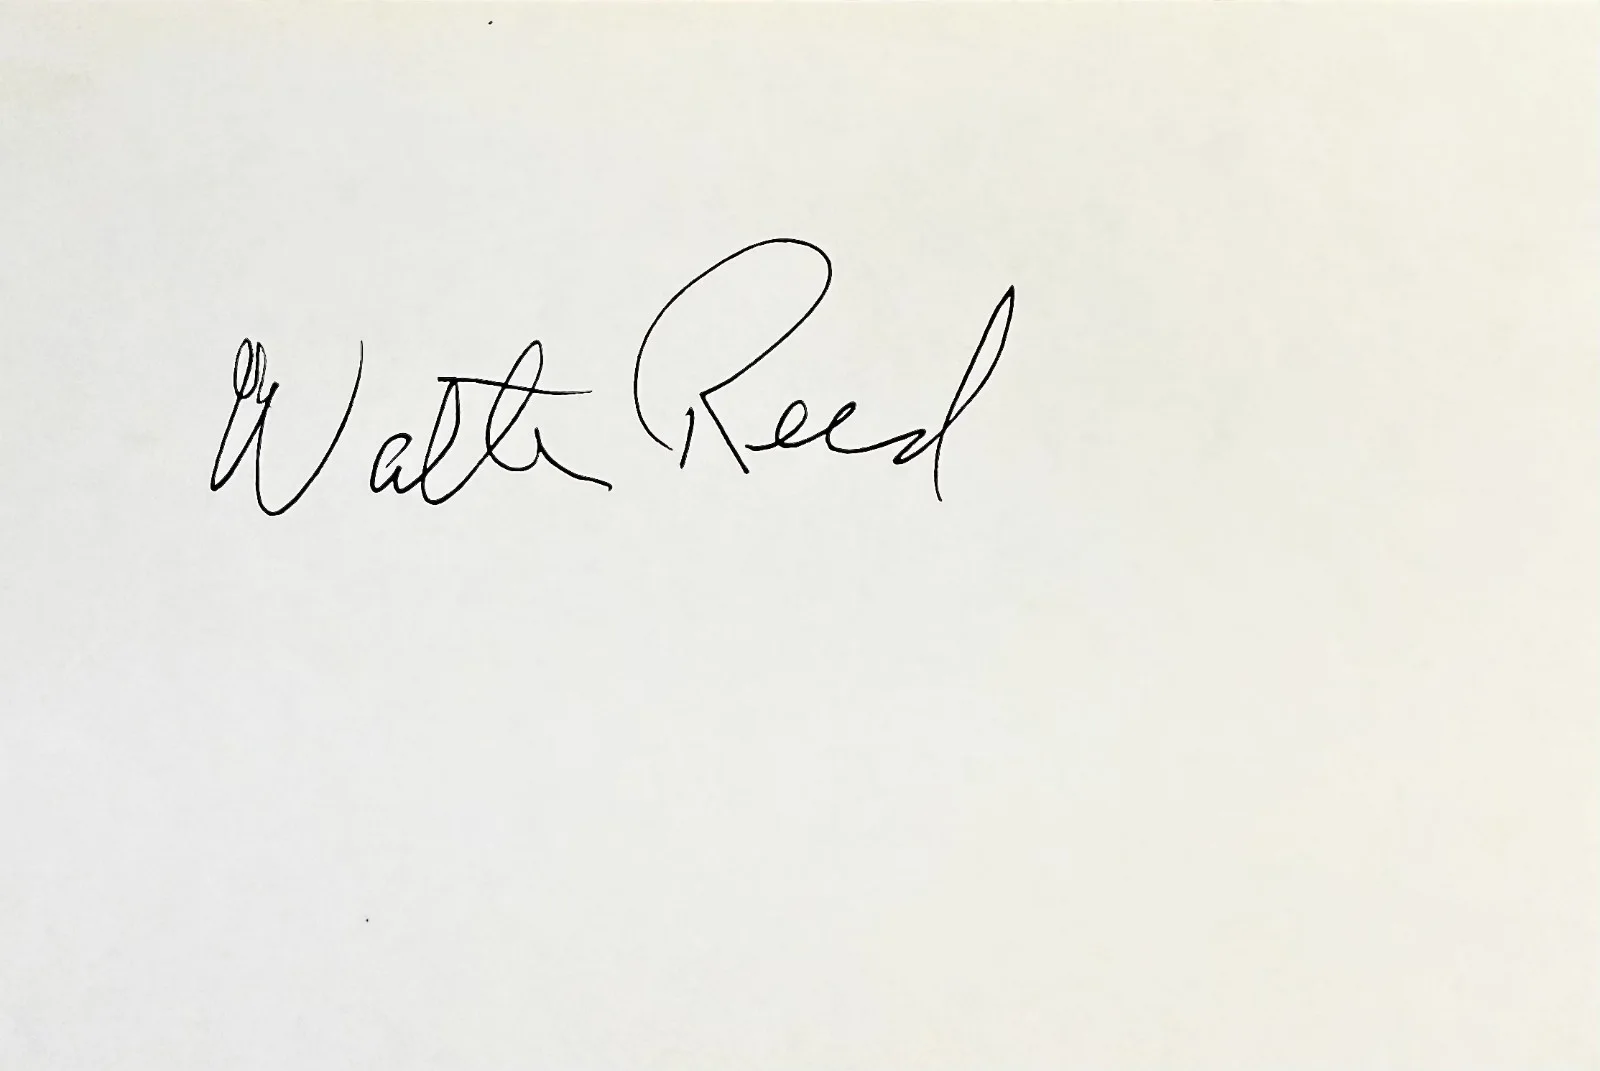 Walter Reed